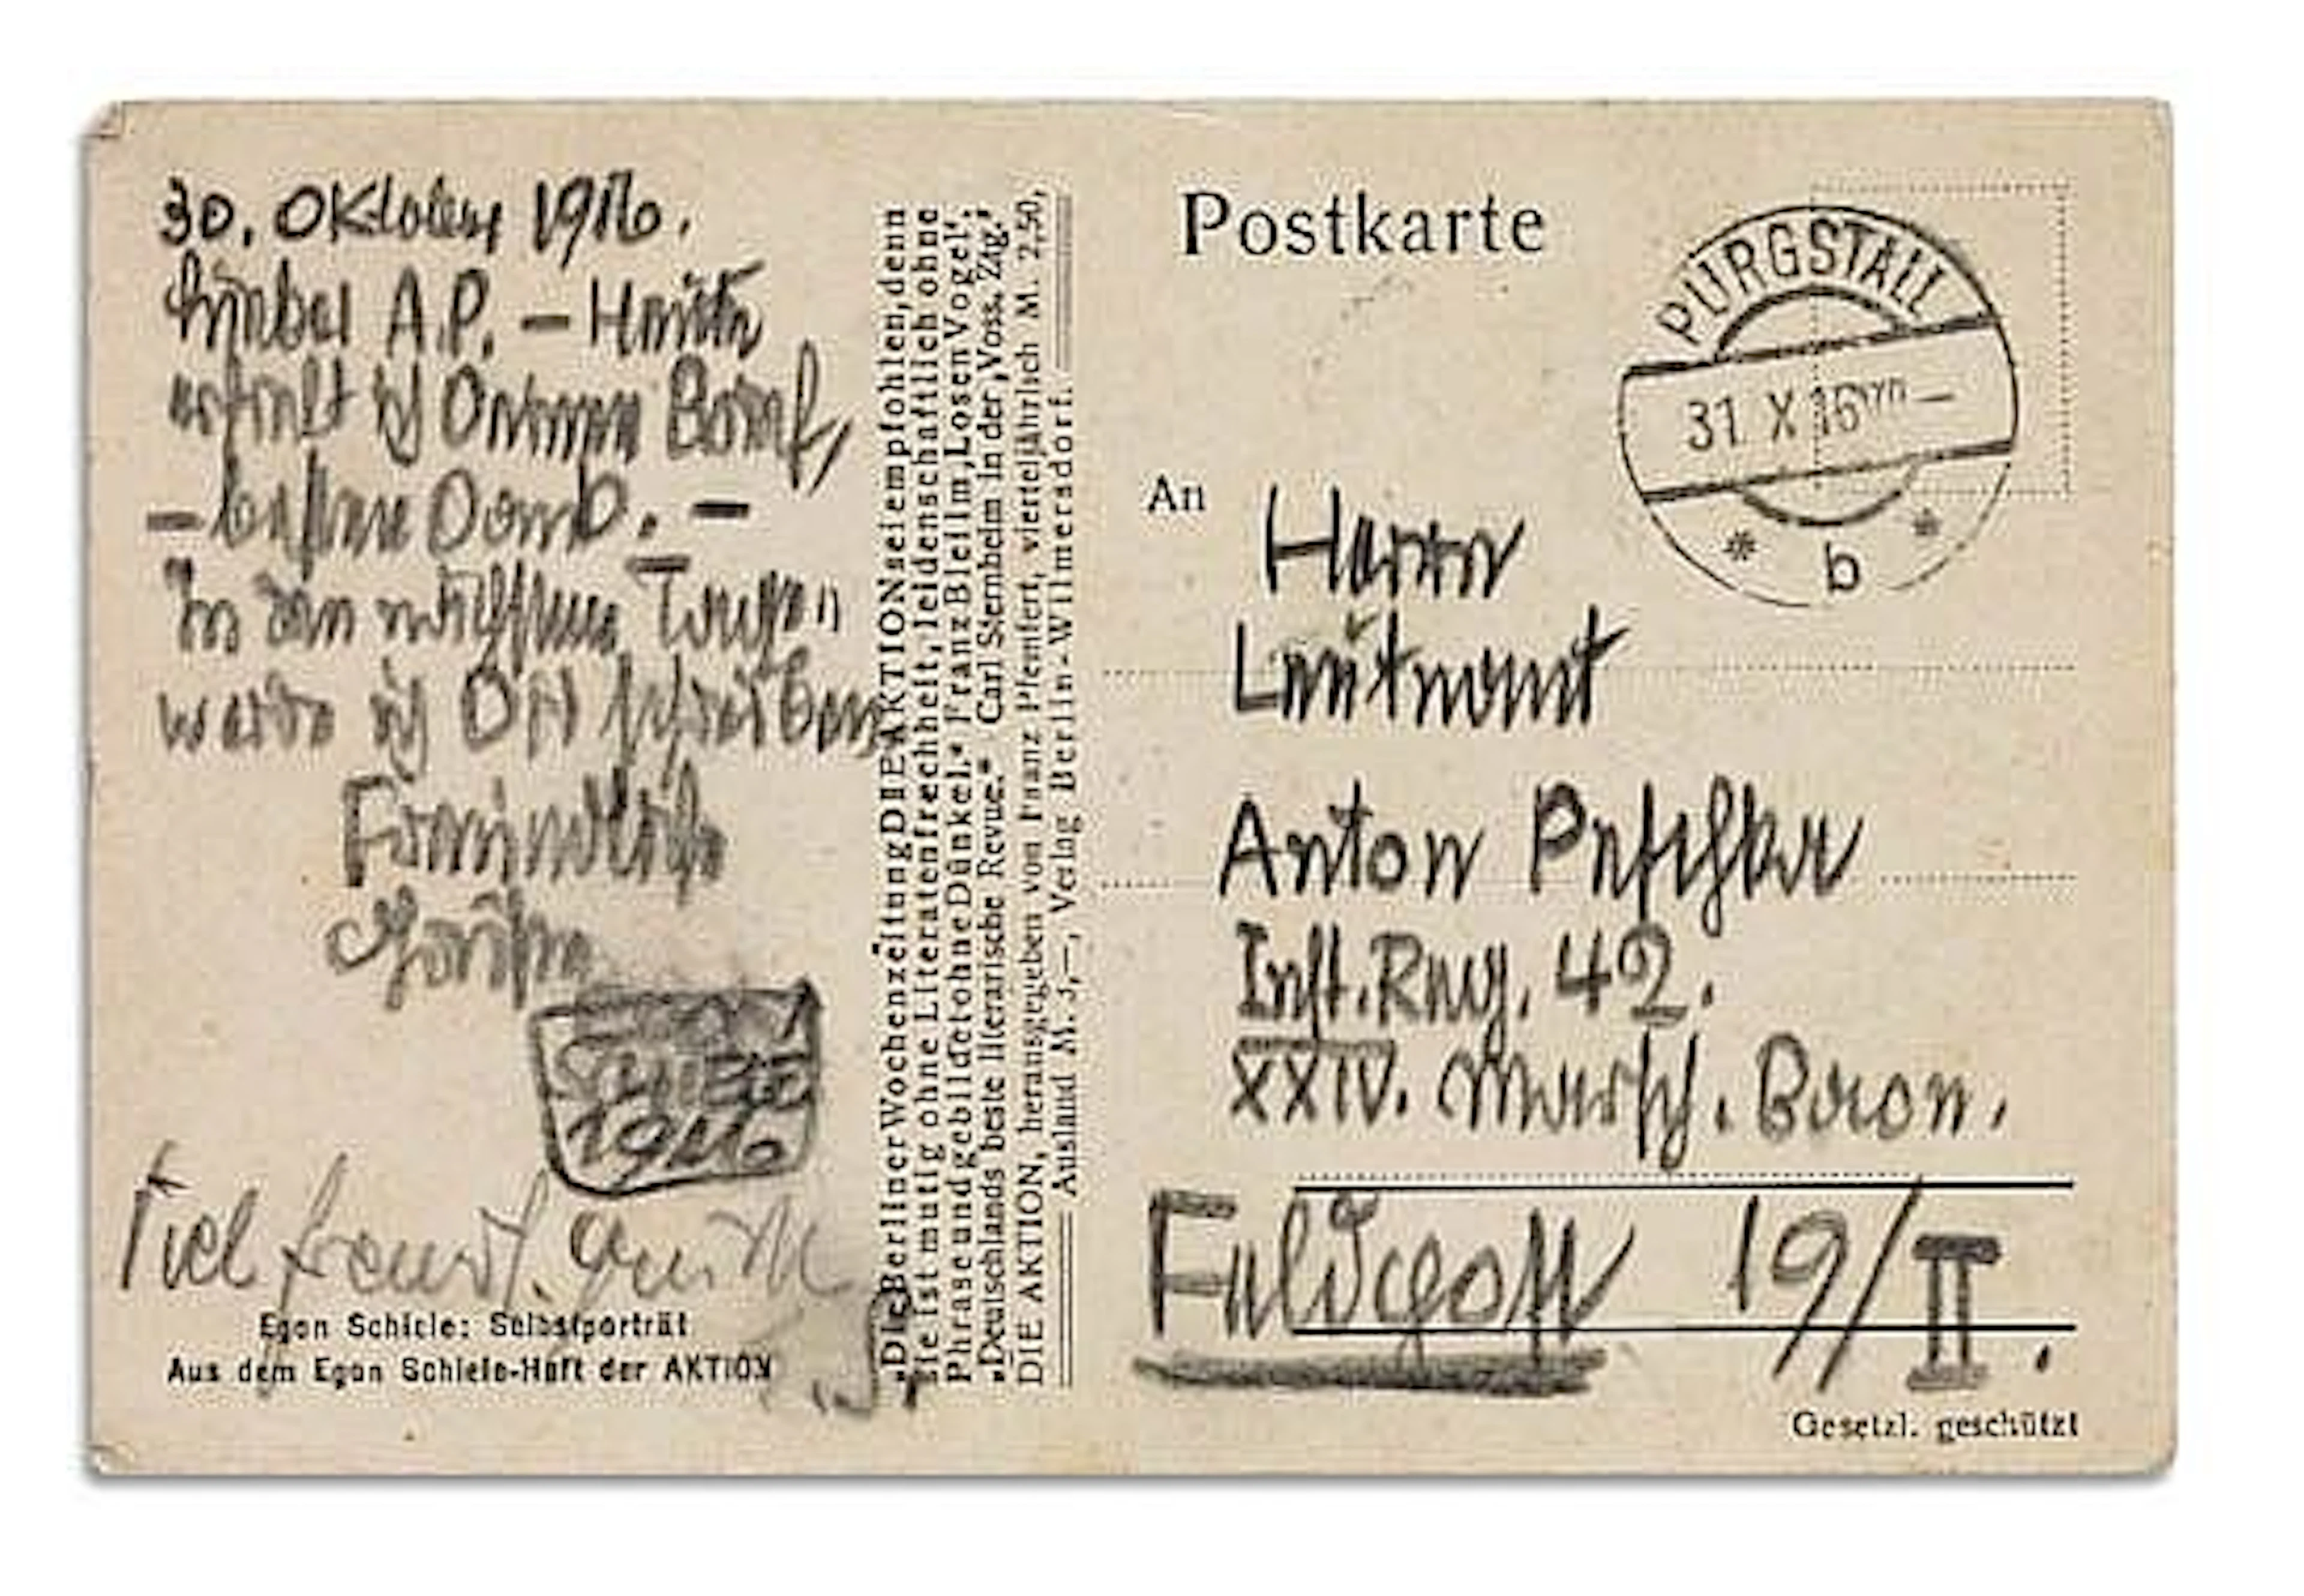 30. Oktober 1916.
Lieber A.P. – Heute
erhielt ich Deinen Brief,
– besten Dank. –
In den nächsten Tagen
werde ich Dir schreiben
Freundlich
EGON
SCHIELE
1916
Viel freundl. Grüße
E. S.
Egon Schiele: Selbstporträt
Aus dem Egon Schiele-Heft der AKTION
„Die Berliner Wochenzeitung DIE AKTION sei empfohlen, denn
sie ist mutig ohne Literatenfrechheit, leidenschaftlich ohne
Phrase und gebildet ohne Dünkel.“ Franz Blei im ‚Losen Vogel‘.
„Deutschlands beste literarische Revue.“ Carl Sternheim in der ‚Voss. Ztg.‘
DIE AKTION, herausgegeben von Franz Pfemfert, vierteljährlich M. 2,50,
Ausland M. 3,—, Verlag Berlin-Wilmersdorf.
Postkarte
PURGSTALL
31 X 16
* b *
An
Herrn
Leutnant
Anton Peschka
Inft. Reg. 42.
XXIV. Marsch. Baon.
Feldpost 19/II.
Gesetzl. geschützt